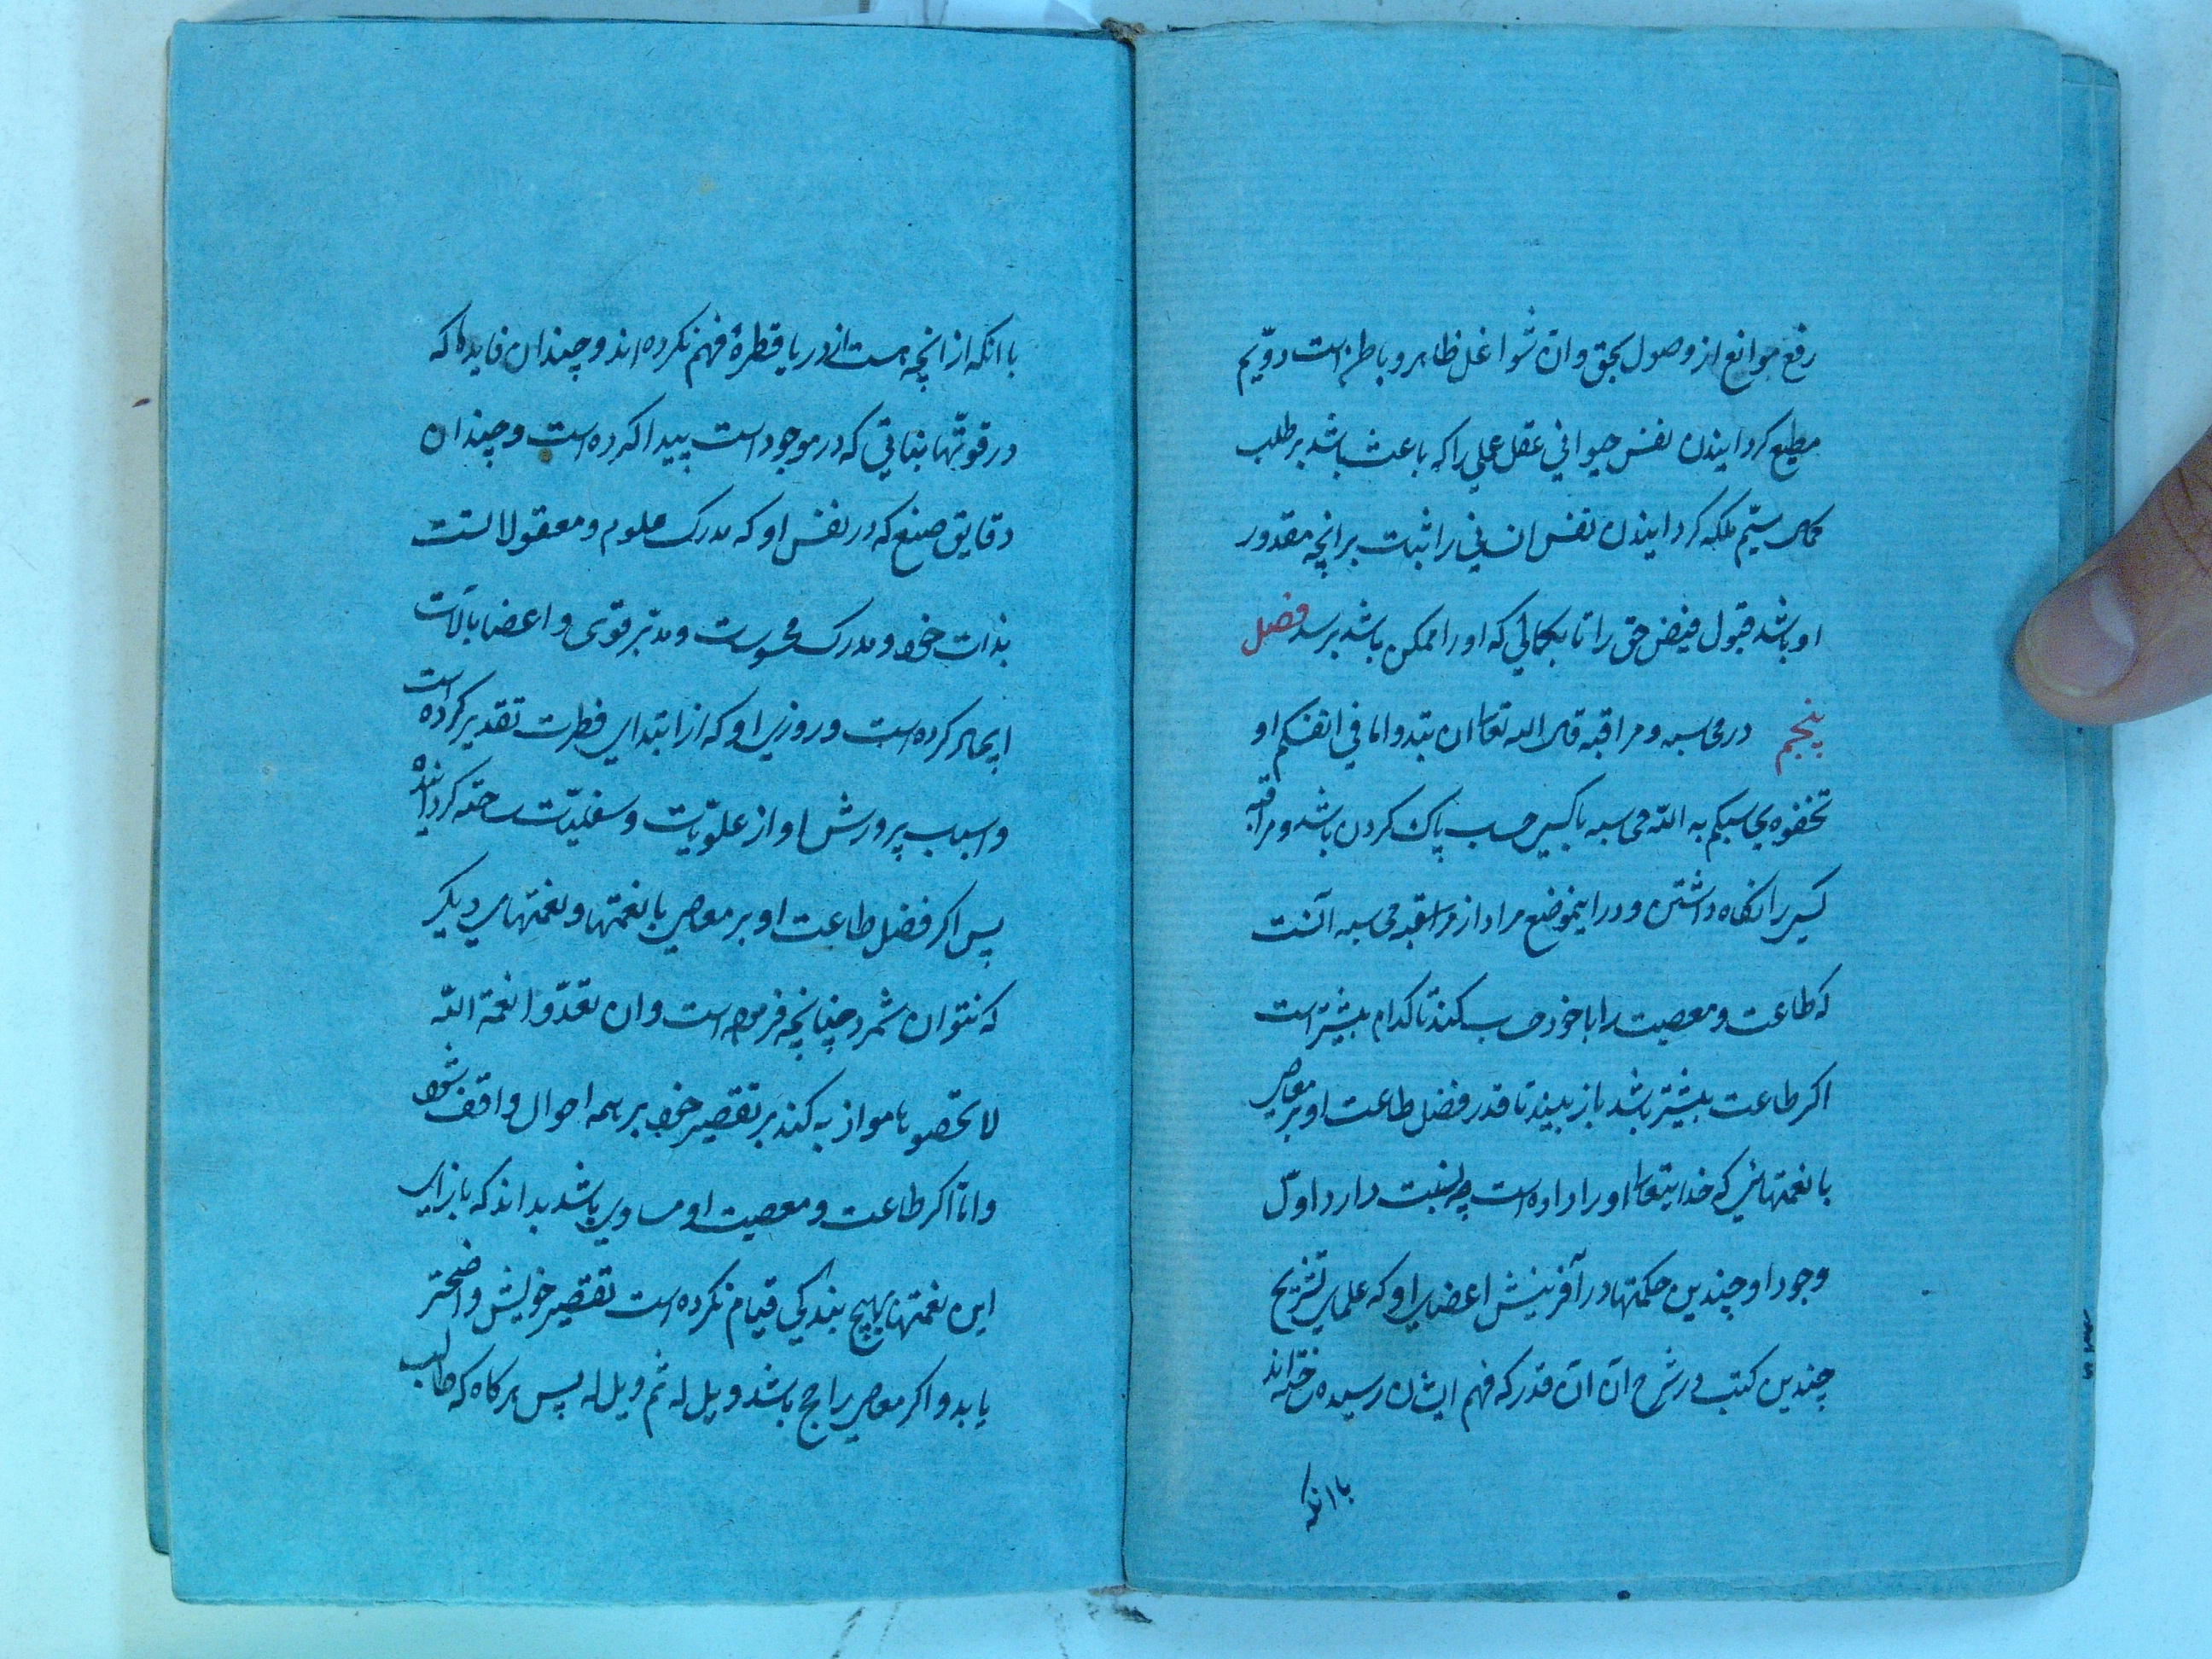 رفع موانع از وصول بحق وان شواغل ظاهر و باطن است دویم
مطیع کردانیدن نفس حیوانی عقل عملی را که باعث باشد بر طلب
کمال سیّم ملکه کردانیدن نفس انسانی را ثبات بر انچه مقدور
او باشد قبول فیض حق را تا بکمالی که او را ممکن باشد برسد فصل
پنجم در محاسبه و مراقبه قال الله تعالی ان تبدوا ما فی انفسکم او
تخفوه یحاسبکم به اللّه محاسبه با کسی حساب پاک کردن باشد و مراقبه
کسی را نکاه داشتن و در اینموضع مراد از مراقبه محاسبه آنست
که طاعت و معصیت را با خود حساب کند تا کدام بیشتر است
اکر طاعت بیشتر باشد باز بیند تا قدر فضل طاعت او بر معاصی
با نعمتهائی که خدایتعالی او را داده است چه نسبت دارد اوّل
وجود او چندین حکمتها در آفرینش اعضای او که علمای تشریح
چندین کتب در شرح آن آن قدر که فهم ایشان رسیده ساخته‌اند
با انکه
با انکه از انچه هست از دریا قطرهٔ فهم نکرده اند و چندان فایدها که
در قوّتها نباتی که در موجود است پیدا کرده است و چندان
دقایق صنع که در نفس او که مدرک علوم و معقولاتست
بذات خود و مدرک محسوسات و مدبّر قوی و اعضا بآلات
ایجاد کرده است و روزی او که از ابتدای فطرت تقدیر کرده است
و اسباب پرورش او از علویّات و سفلیّات ساخته کردانیده
پس اکر فضل طاعت او بر معاصی با نعمتها و نعمتهای دیکر
که نتوان شمرد چنانچه فرموده است وان تعدّوا نعمة اللّه
لا تحصوها موازنه کند بر تقصیر خود بر همه احوال واقف شود
و امّا اکر طاعت و معصیت او مساوی باشد بداند که بازای
این نعمتها بهیچ بندکی قیام نکرده است تقصیر خویش واضحتر
یابد و اکر معاصی راجح باشد ویل له ثم ویل له پس هرکاه که طالب